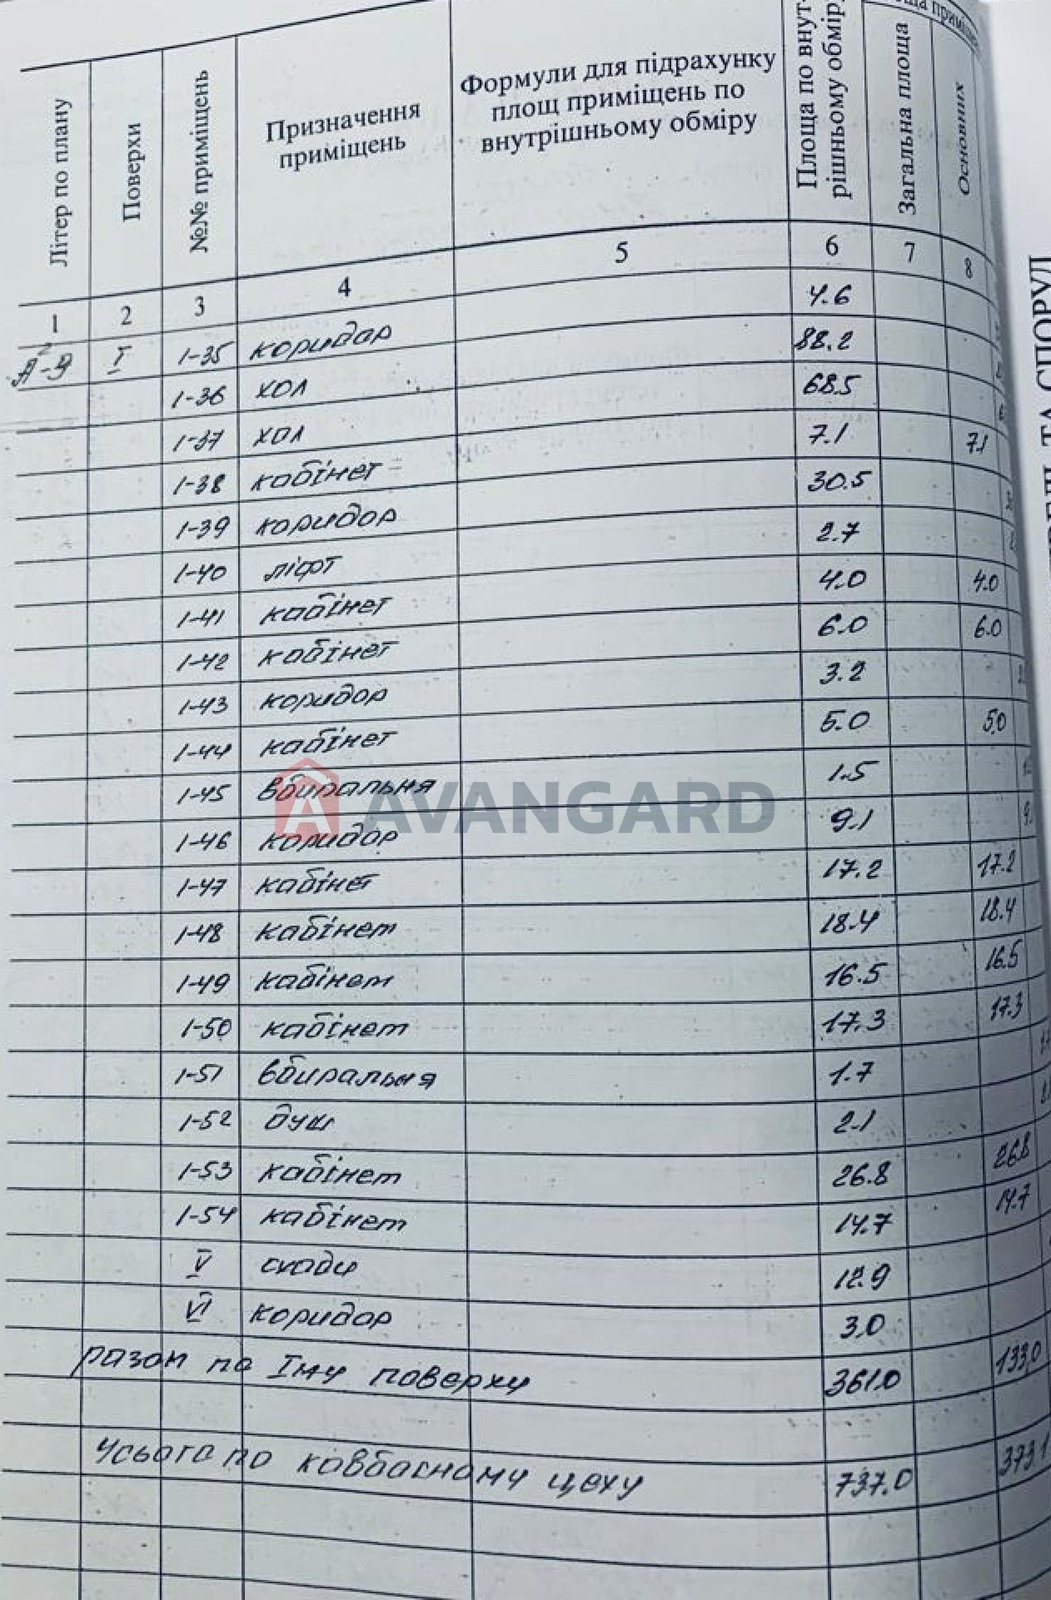 Літер по плану
Поверхи
№№ приміщень
Призначення приміщень
Формули для підрахунку площ приміщень по внутрішньому обміру
Площа по внут-рішньому обміру
Загальна площа
Основних
1 2 3 4 5 6 7 8
А²-9 I 1-35 коридор 4.6
1-36 хол 88.2
1-37 хол 68.5
1-38 кабінет 7.1 7.1
1-39 коридор 30.5
1-40 ліфт 2.7
1-41 кабінет 4.0 4.0
1-42 кабінет 6.0 6.0
1-43 коридор 3.2
1-44 кабінет 5.0 5.0
1-45 вбиральня 1.5
1-46 коридор 9.1
1-47 кабінет 17.2 17.2
1-48 кабінет 18.4 18.4
1-49 кабінет 16.5 16.5
1-50 кабінет 17.3 17.3
1-51 вбиральня 1.7
1-52 душ 2.1
1-53 кабінет 26.8 26.8
1-54 кабінет 14.7 14.7
V сходи 12.9
VI коридор 3.0
разом по Iму поверху 361.0 133.0
Усього по ковбасному цеху 737.0 373.1
AVANGARD
ТА СПОРУД